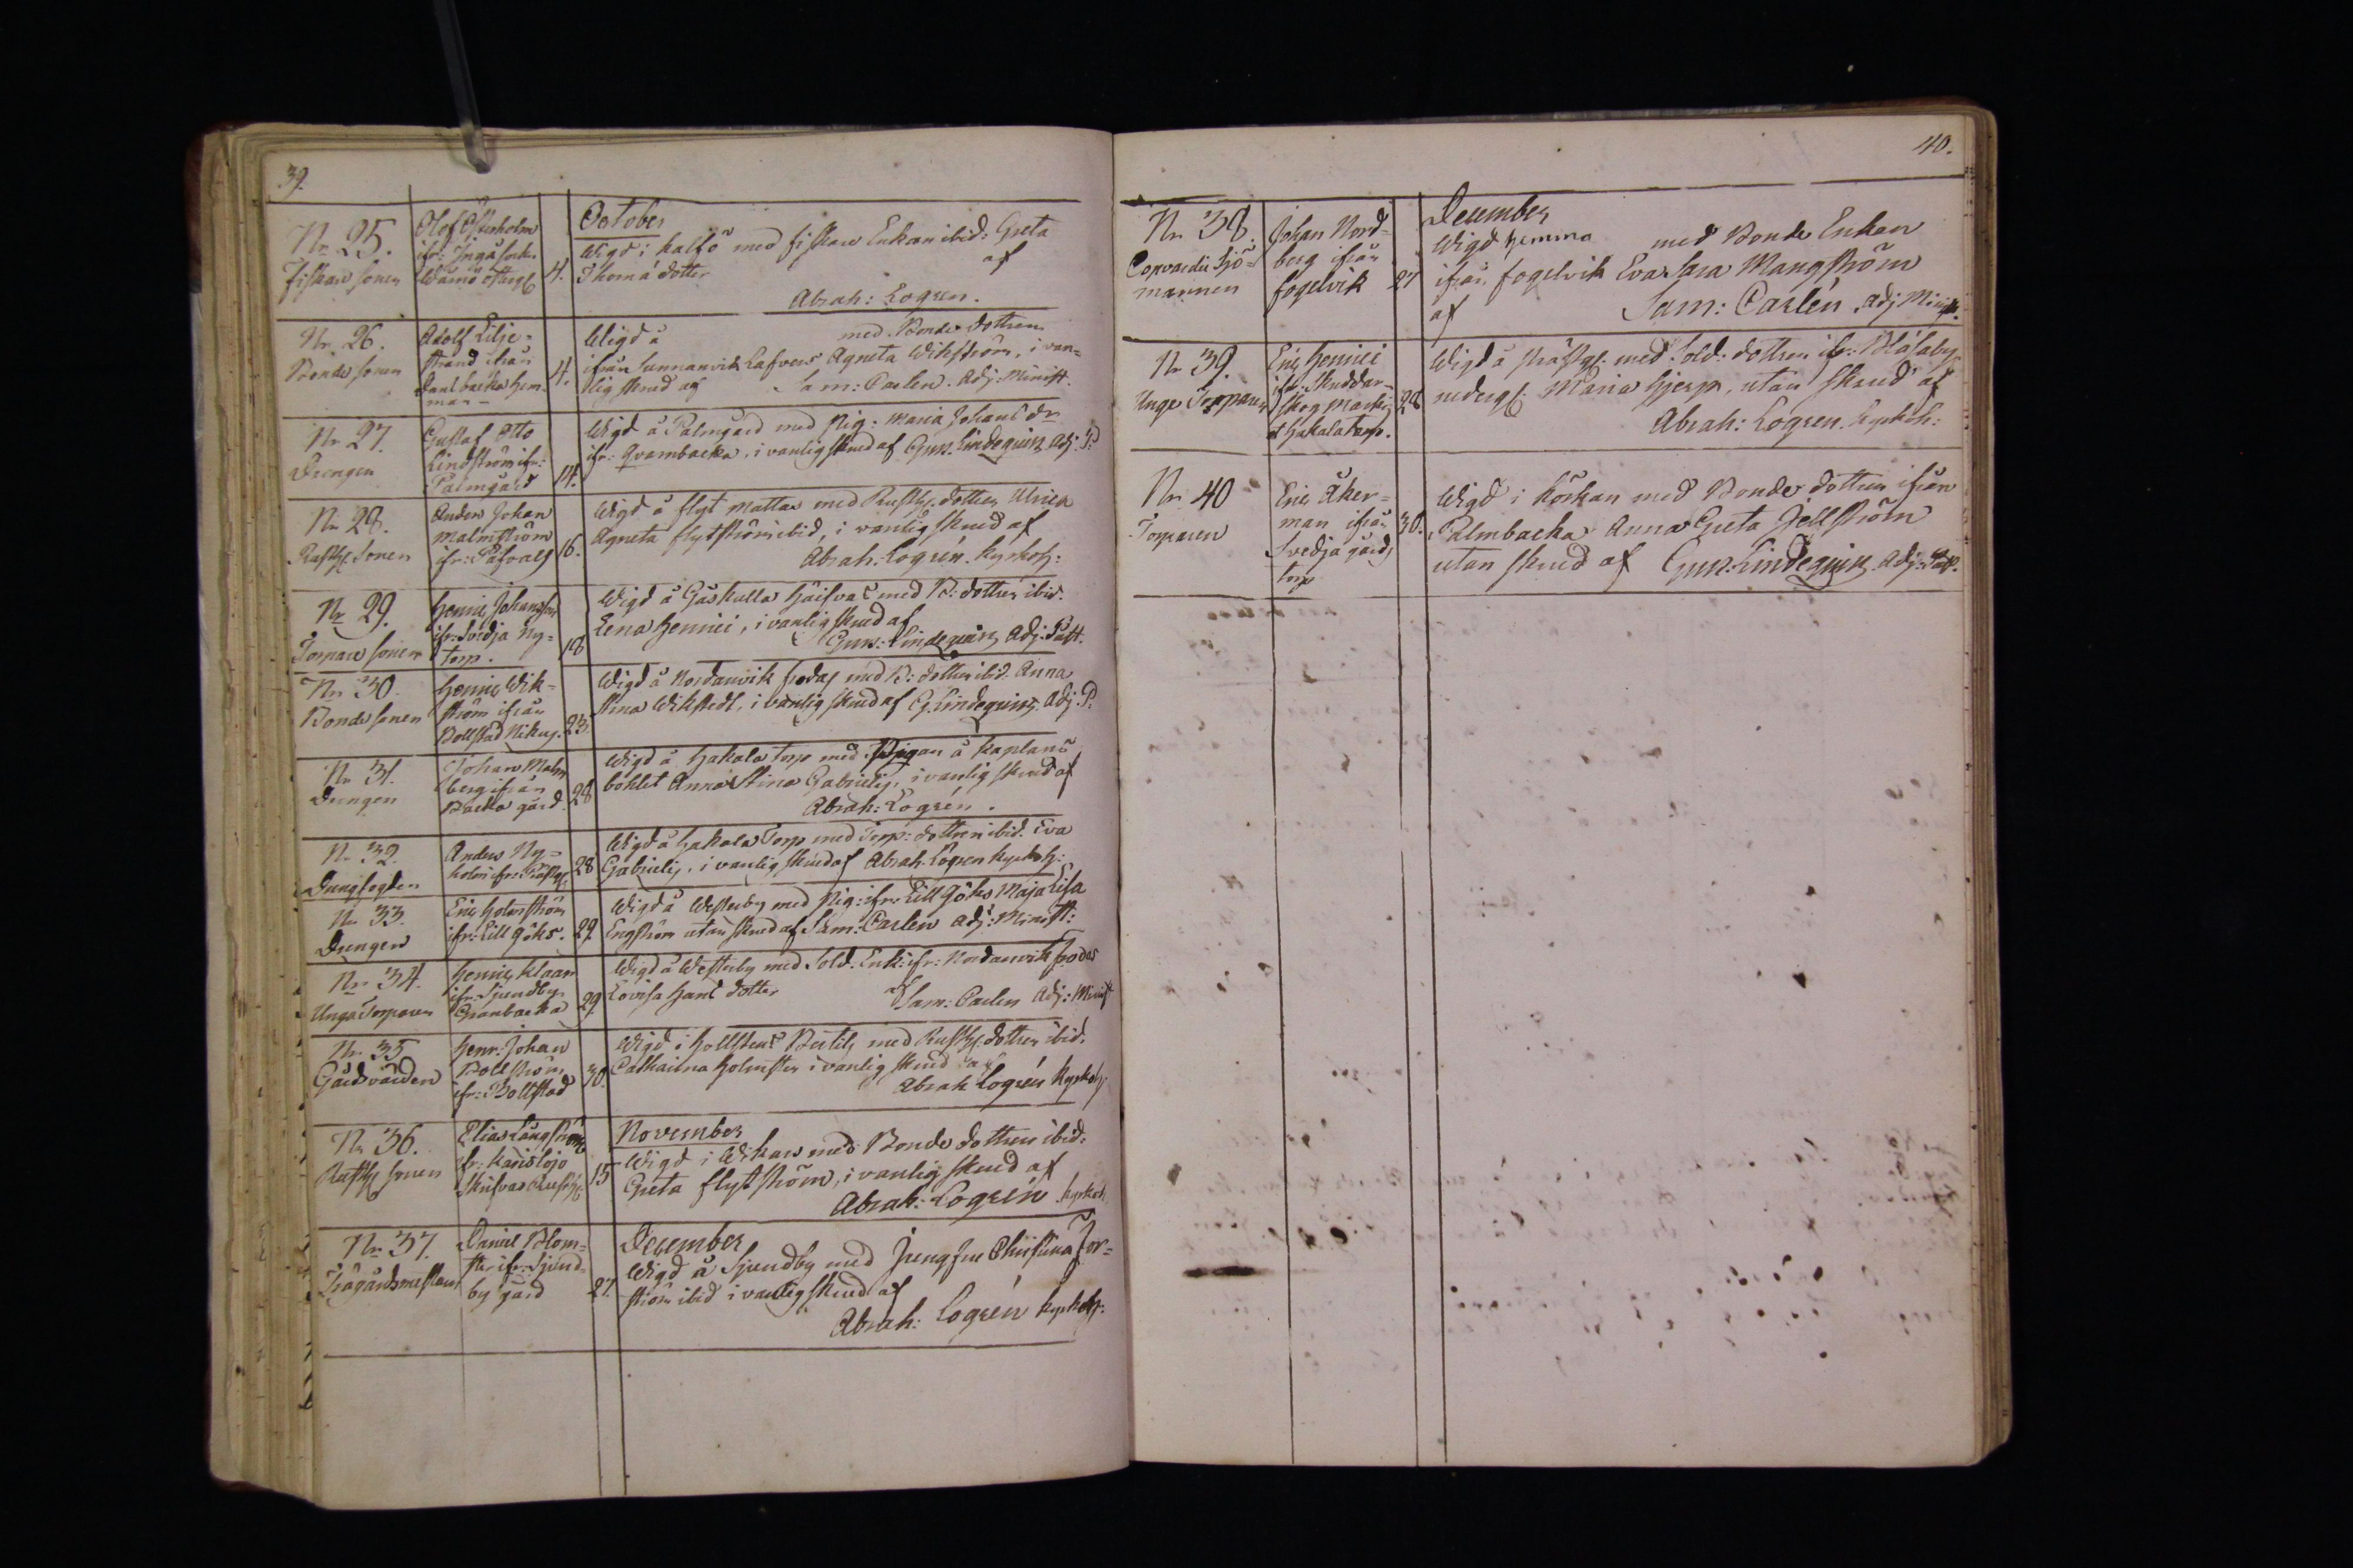 39.
October
Nr 25.
Fiskare sonen
Olof Österholm
ifr: Ingå socken
4.
Wigd i kalfö med fiskare Enkan ibid: Greta
Thomæ dotter af
Abrah: Logren.
Nr 26.
Bonde sonen
Adolf Lilje-
strand ifrån
4.
Wigd å med Bonde dottren
ifrån Sunnanvik Agneta Wikström, i van-
lig skrud af Sam: Carlen. Adj: Minist.
Nr 27.
Drengen
Gustaf Otto
Lindström ifr:
Palmgård
14.
Wigd å Palmgård med Pig: Maria Johans dr
ifr: Qvarnbacka, i vanlig skrud af Gust. Lindequist, Adj: P:
Nr 28.
Rusth: Sonen
Anders Johan
Malmström
16.
Wigd å flyt mattas med Rusth: dottren Ulrica
Agneta flytström ibid, i vanlig skrud af
Abrah: Logrén. Kyrkoh:
Nr 29.
Torpare sonen
Henric Johansson
ifr: Svidja Ny-
torp.
18
Wigd å Gåskulla med B: dottren ibid.
Lena Henrici, i vanlig skrud af
Gust: Lindequist Adj: Past.
Nr 30.
Bonde sonen
Henric Wik-
ström ifrån
Bollstad
23.
Wigd å Nordanvik med B: dottren ibid. Anna
Stina Wikstedt, i vanlig skrud af G. Lindequist. Adj. P:
Nr 31.
Drengen
Johan Malm
berg ifrån
Backa gård
28
Wigd å Hakala torp med Pigan å Kaplans
bohlet Anna Stina Gabrielij, i vanlig skrud af
Abrah: Logrén.
Nr 32.
Drengfogden
Anders Ny-
holm ifr:
28
Wigd å Hakala Torp med Torp: dottren ibid. Eva
Gabrielij, i vanlig skrud af Abrah. Logren Kyrkoh:
Nr 33.
Drengen
Eric Holmström
ifr: Lill Göks.
29
Wigd å Westerby med Pig: ifr: Lill Göks Maja Lisa
Engström utan skrud af Sam: Carlen Adj: Minist:
Nr 34.
Unga Torparen
Henric Klaar
ifr: Sjundby
Granbacka
29
Wigd å Westerby med Sold. Enk: ifr: Nordanvik
Lovisa Hans dotter af Sam: Carlen Adj: Minist
Nr 35
Gårdvarden
Henr: Johan
Bollström
ifr: Bollstad
30.
Wigd i Hollstens Bertils med Rusth: dottren ibid.
Catharina Holmsten i vanlig skrud af
Abrah Logrén Kyrkoh:
November
Nr 36.
Rusth: sonen
Elias Långström
ifr: Karislojo
15
Wigd i Wikars med Bonde dottren ibid:
Greta flytström, i vanlig skrud af
Abrah: Logrén kyrkoh.
December
Nr 37.
Trägårdsmästaren
Daniel Blom-
ster ifr: Sjund-
by gård
27.
Wigd å Sjundby med Jungfru Christina For-
ström ibid i vanlig skrud af
Abrah: Logrén kyrkoh:
40.
December
Nr 38.
Copvardie Sjö-
mannen
Johan Nord-
berg ifrån
fogelvik
27
Wigd hemma med Bonde Enkan
ifrån fogelvik Eva Lisa Wangström
af Sam: Carlén. Adj Minist.
Nr 39.
Unge Torparen
Eric Henrici
ifr: Skuddar-
skog
Hakala torp.
28
Wigd å prästg: med Sold: dottren ifr: Blåsaby
nedergs: Maria Hjerp, utan skrud af
Abrah: Logren. Kyrkoh:
Nr 40
Torparen
Eric Åker-
man ifrån
Svedja gårds
torp
30.
Wigd i körkan med Bonde dottren ifrån
Palmbacka Anna Greta Fellström
utan skrud af Gust: Lindequist. Adj: Past.